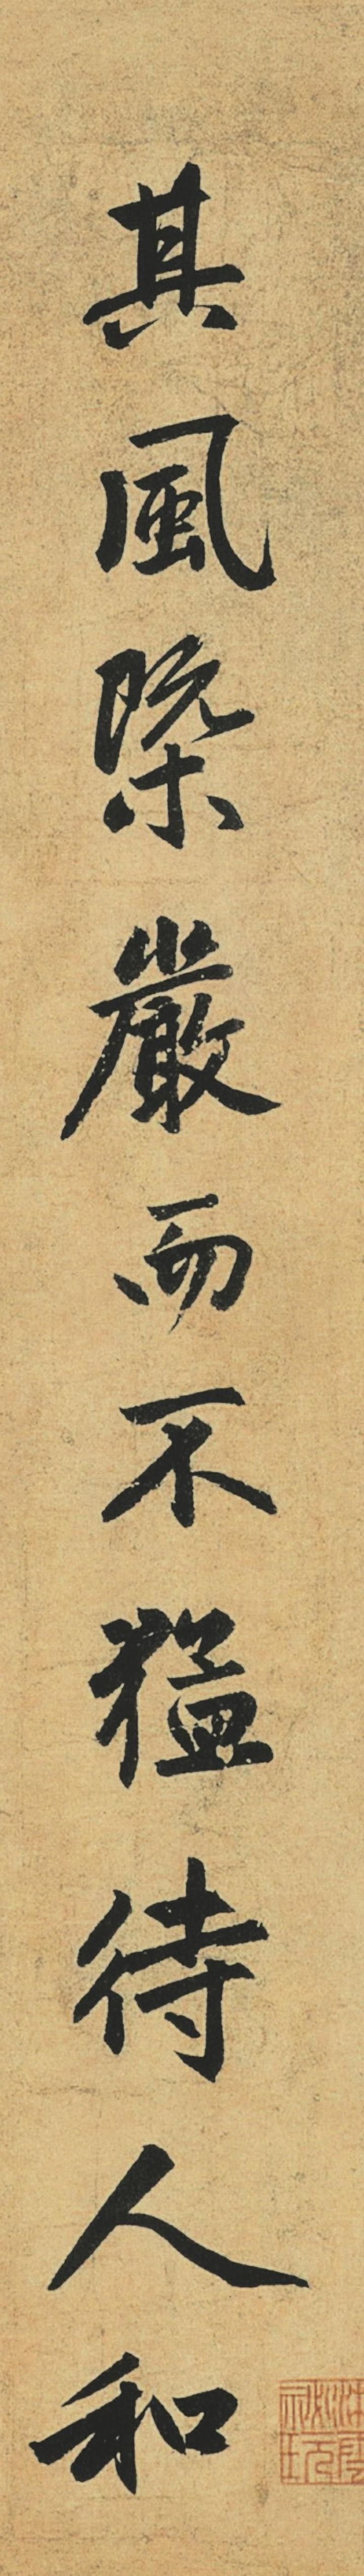 其風槩嚴而不猛待人和